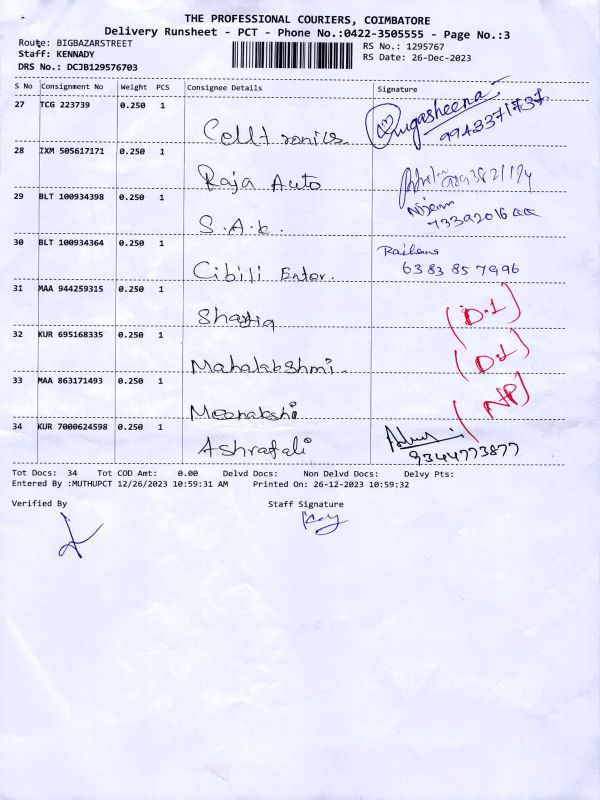 THE PROFESSIONAL COURIERS, COIMBATORE
Delivery Runsheet - PCT - Phone No.:0422-3505555 - Page No.:3
Route: BIGBAZARSTREET
RS No.: 1295767
Staff: KENNADY
RS Date: 26-Dec-2023
DRS No.: DCJB129576703
S No Consignment No Weight PCS Consignee Details Signature
27 TCG 223739 0.250 1
Celltronics.
28 IXM 505617171 0.250 1
Raja Auto
29 BLT 100934398 0.250 1
S.A.b.
30 BLT 100934364 0.250 1
Cibili Enter. 63 83 85 7996
31 MAA 944259315 0.250 1
(D.L)
32 KUR 695168335 0.250 1
Mahalakshmi. (D.L)
33 MAA 863171493 0.250 1
Meenakshi (NP)
34 KUR 7000624598 0.250 1
Ashrafali 9344773877
Tot Docs: 34 Tot COD Amt: 0.00 Delvd Docs: Non Delvd Docs: Delvy Pts:
Entered By :MUTHUPCT 12/26/2023 10:59:31 AM Printed On: 26-12-2023 10:59:32
Verified By Staff Signature